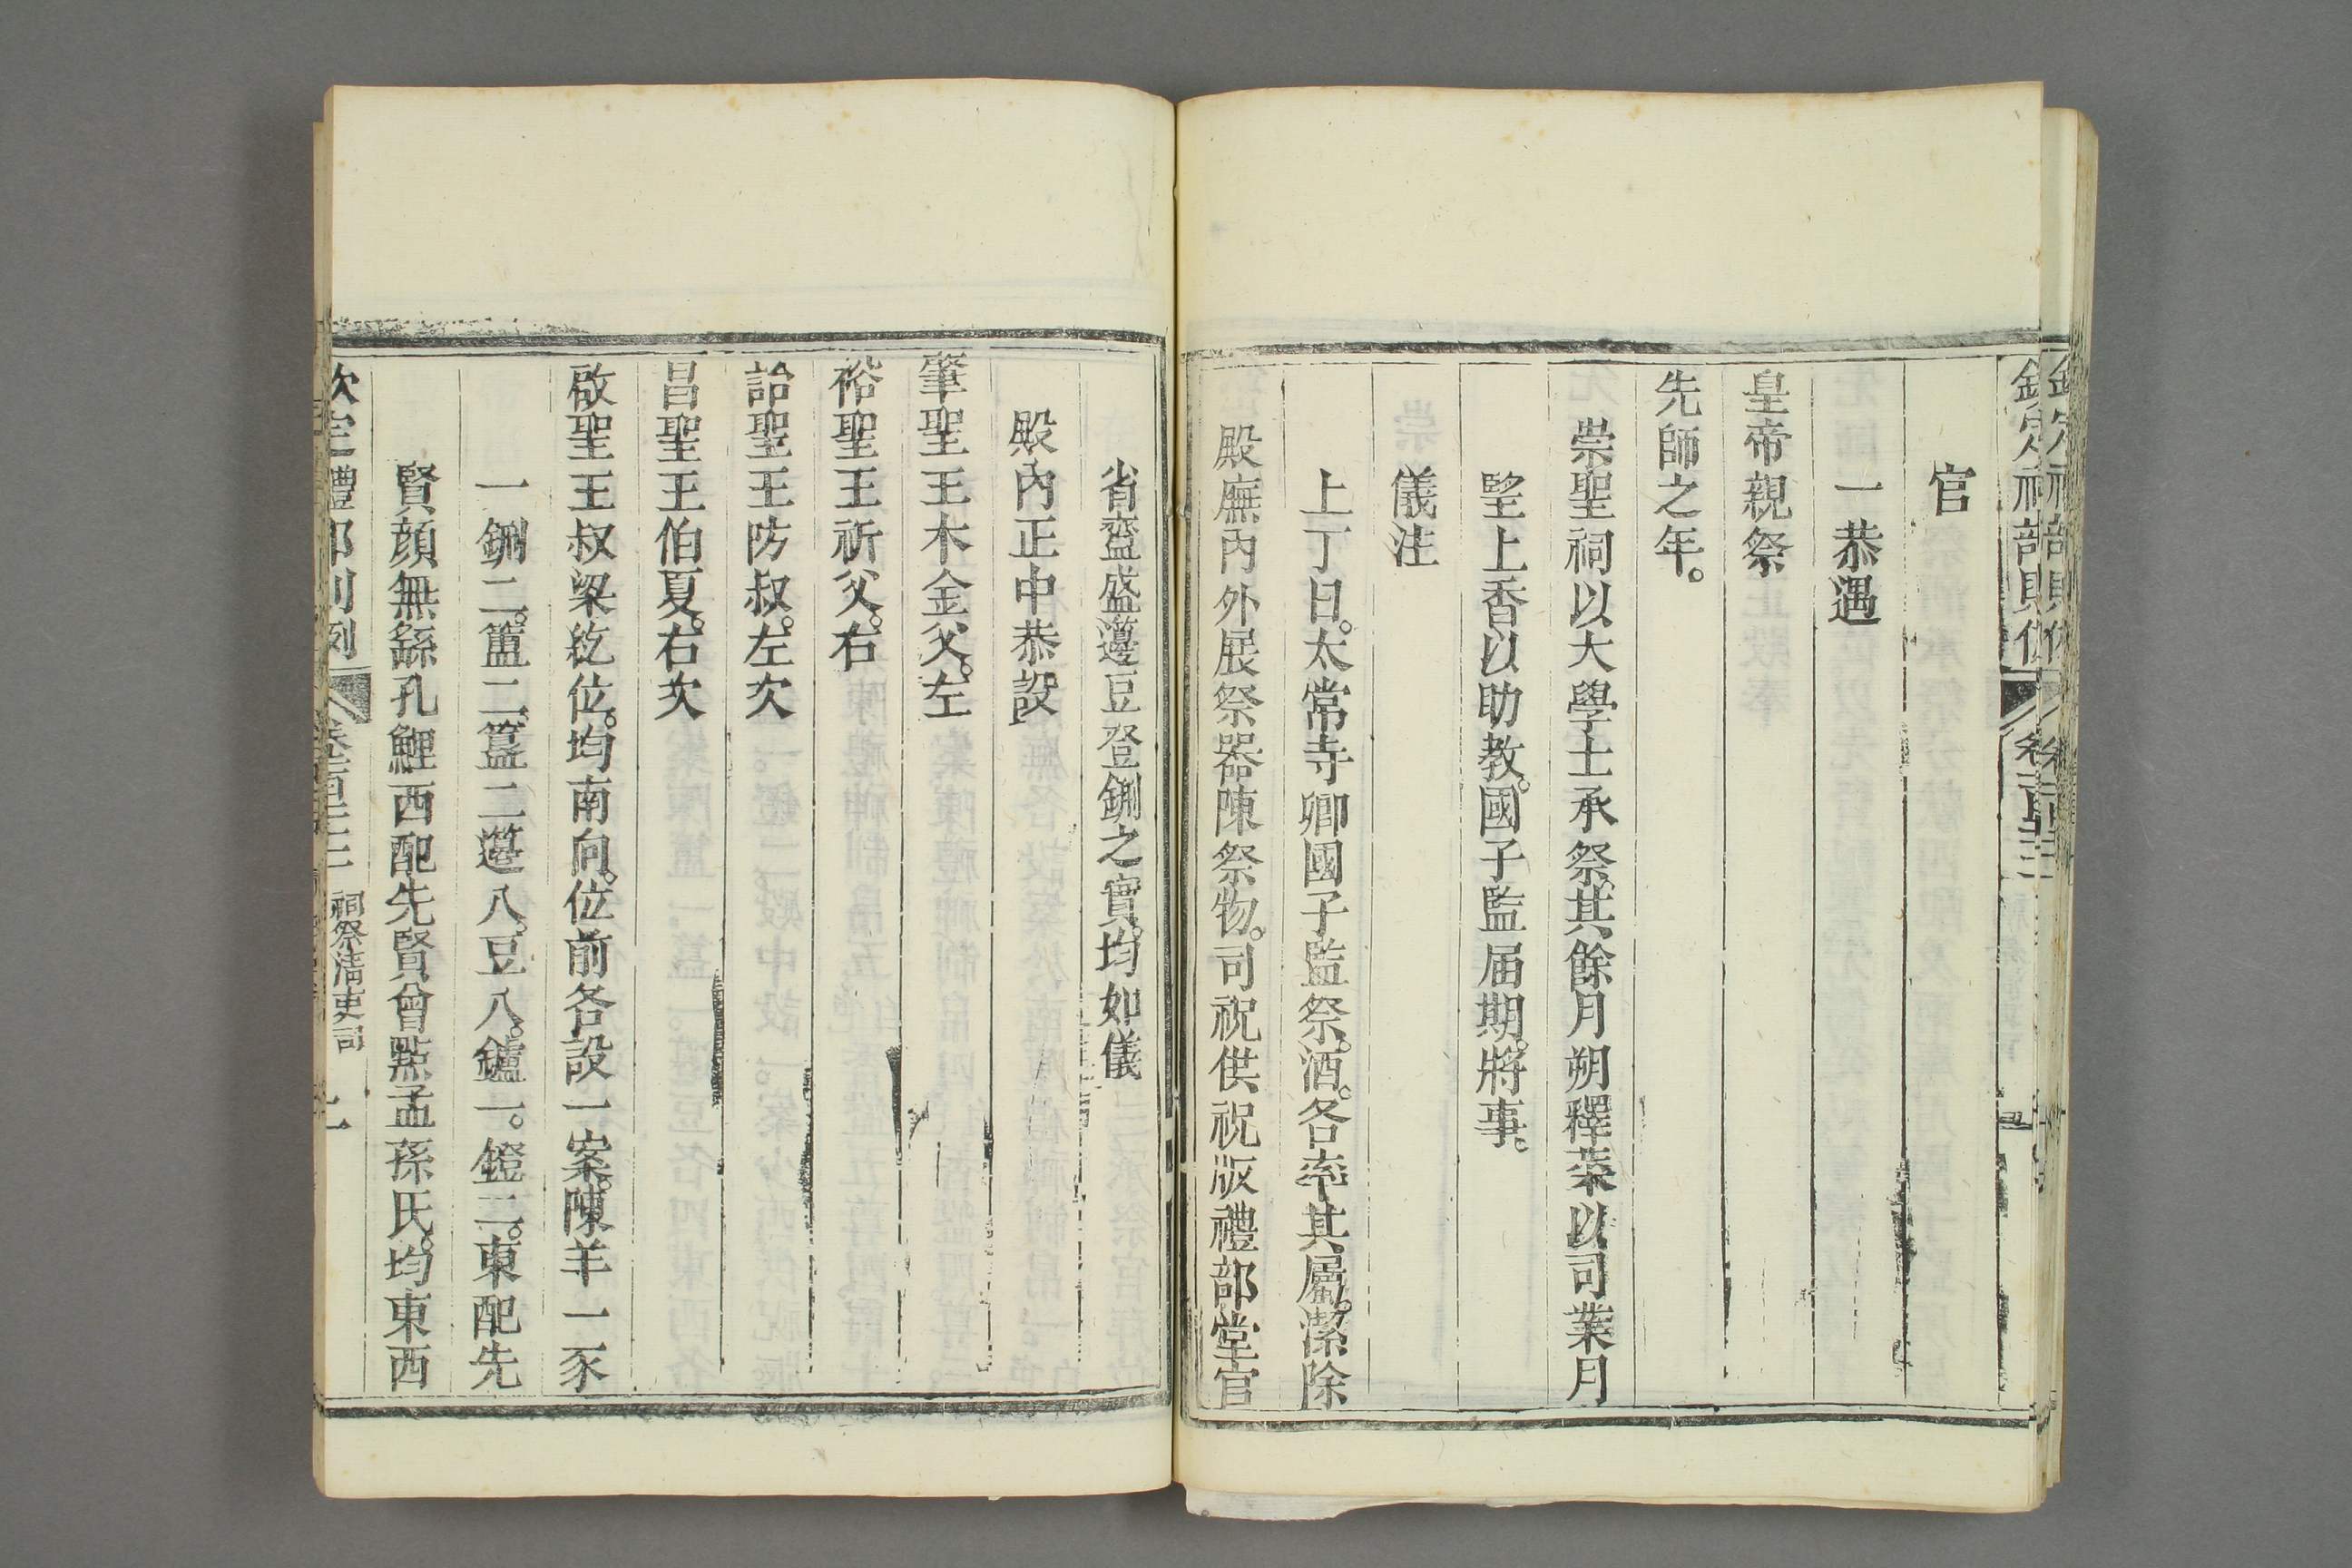 官
一恭遇
皇帝親祭
先師之年。
崇聖祠以大學士承祭。其餘月朔釋菜以司業月
朢上香以助教。國子監届期。將事。
儀注
上丁日。太常寺卿國子監祭。酒。各率其屬。潔除
殿廡内外展祭器陳祭物。司祝供祝版禮部堂官
省齍盛籩豆登鉶之實。均如儀
殿内正中恭設
肇聖王木金父。左
裕聖王祈父。右
詒聖王防叔。左次
昌聖王伯夏。右次
啟聖王叔梁紇位。均南向。位前各設一案。陳羊一豕
一鉶二。簠二。簋二籩八。豆八。鑪一。鐙二。東配先
賢顔無繇孔鯉西配先賢曾點孟孫氏。均東西
欽定禮部則例 卷一百三十三 祠祭清吏司